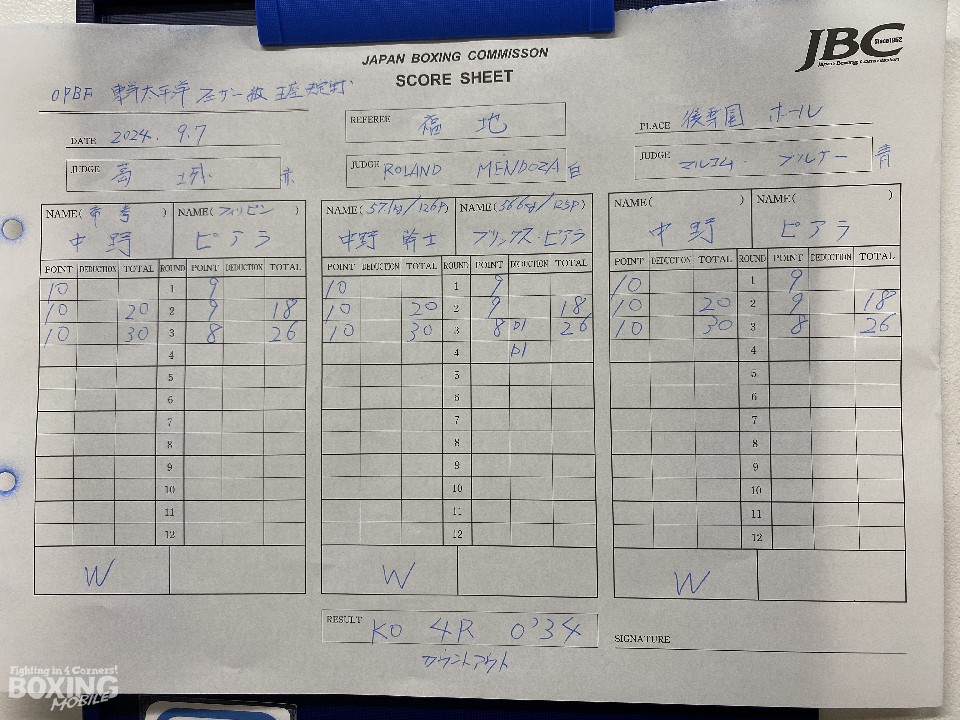 JBC
Since1952
Japan Boxing Commission
JAPAN BOXING COMMISSON
SCORE SHEET
OPBF 東洋太平洋 フェザー級 王座決定戦
DATE 2024. 9.7
REFEREE 福地
PLACE 後楽園ホール
JUDGE 葛城 赤
JUDGE ROLAND MENDOZA 白
JUDGE マルコム・ブルナー 青
NAME(帝拳) 中野 NAME(フィリピン) ピアラ
NAME(57.1kg/126P) 中野 幹士 NAME(56.6kg/125P) ブリックス・ピアラ
NAME( ) 中野 NAME( ) ピアラ
POINT DEDUCTION TOTAL ROUND POINT DEDUCTION TOTAL POINT DEDUCTION TOTAL ROUND POINT DEDUCTION TOTAL POINT DEDUCTION TOTAL ROUND POINT DEDUCTION TOTAL
10 1 9 10 1 9 10 1 9
10 20 2 9 18 10 20 2 9 18 10 20 2 9 18
10 30 3 8 26 10 30 3 8 D1 26 10 30 3 8 26
4 4 D1 4
5 5 5
6 6 6
7 7 7
8 8 8
9 9 9
10 10 10
11 11 11
12 12 12
W W W
RESULT KO 4R 0'34
カウントアウト
SIGNATURE
Fighting in 4 Corners!
BOXING
MOBILE